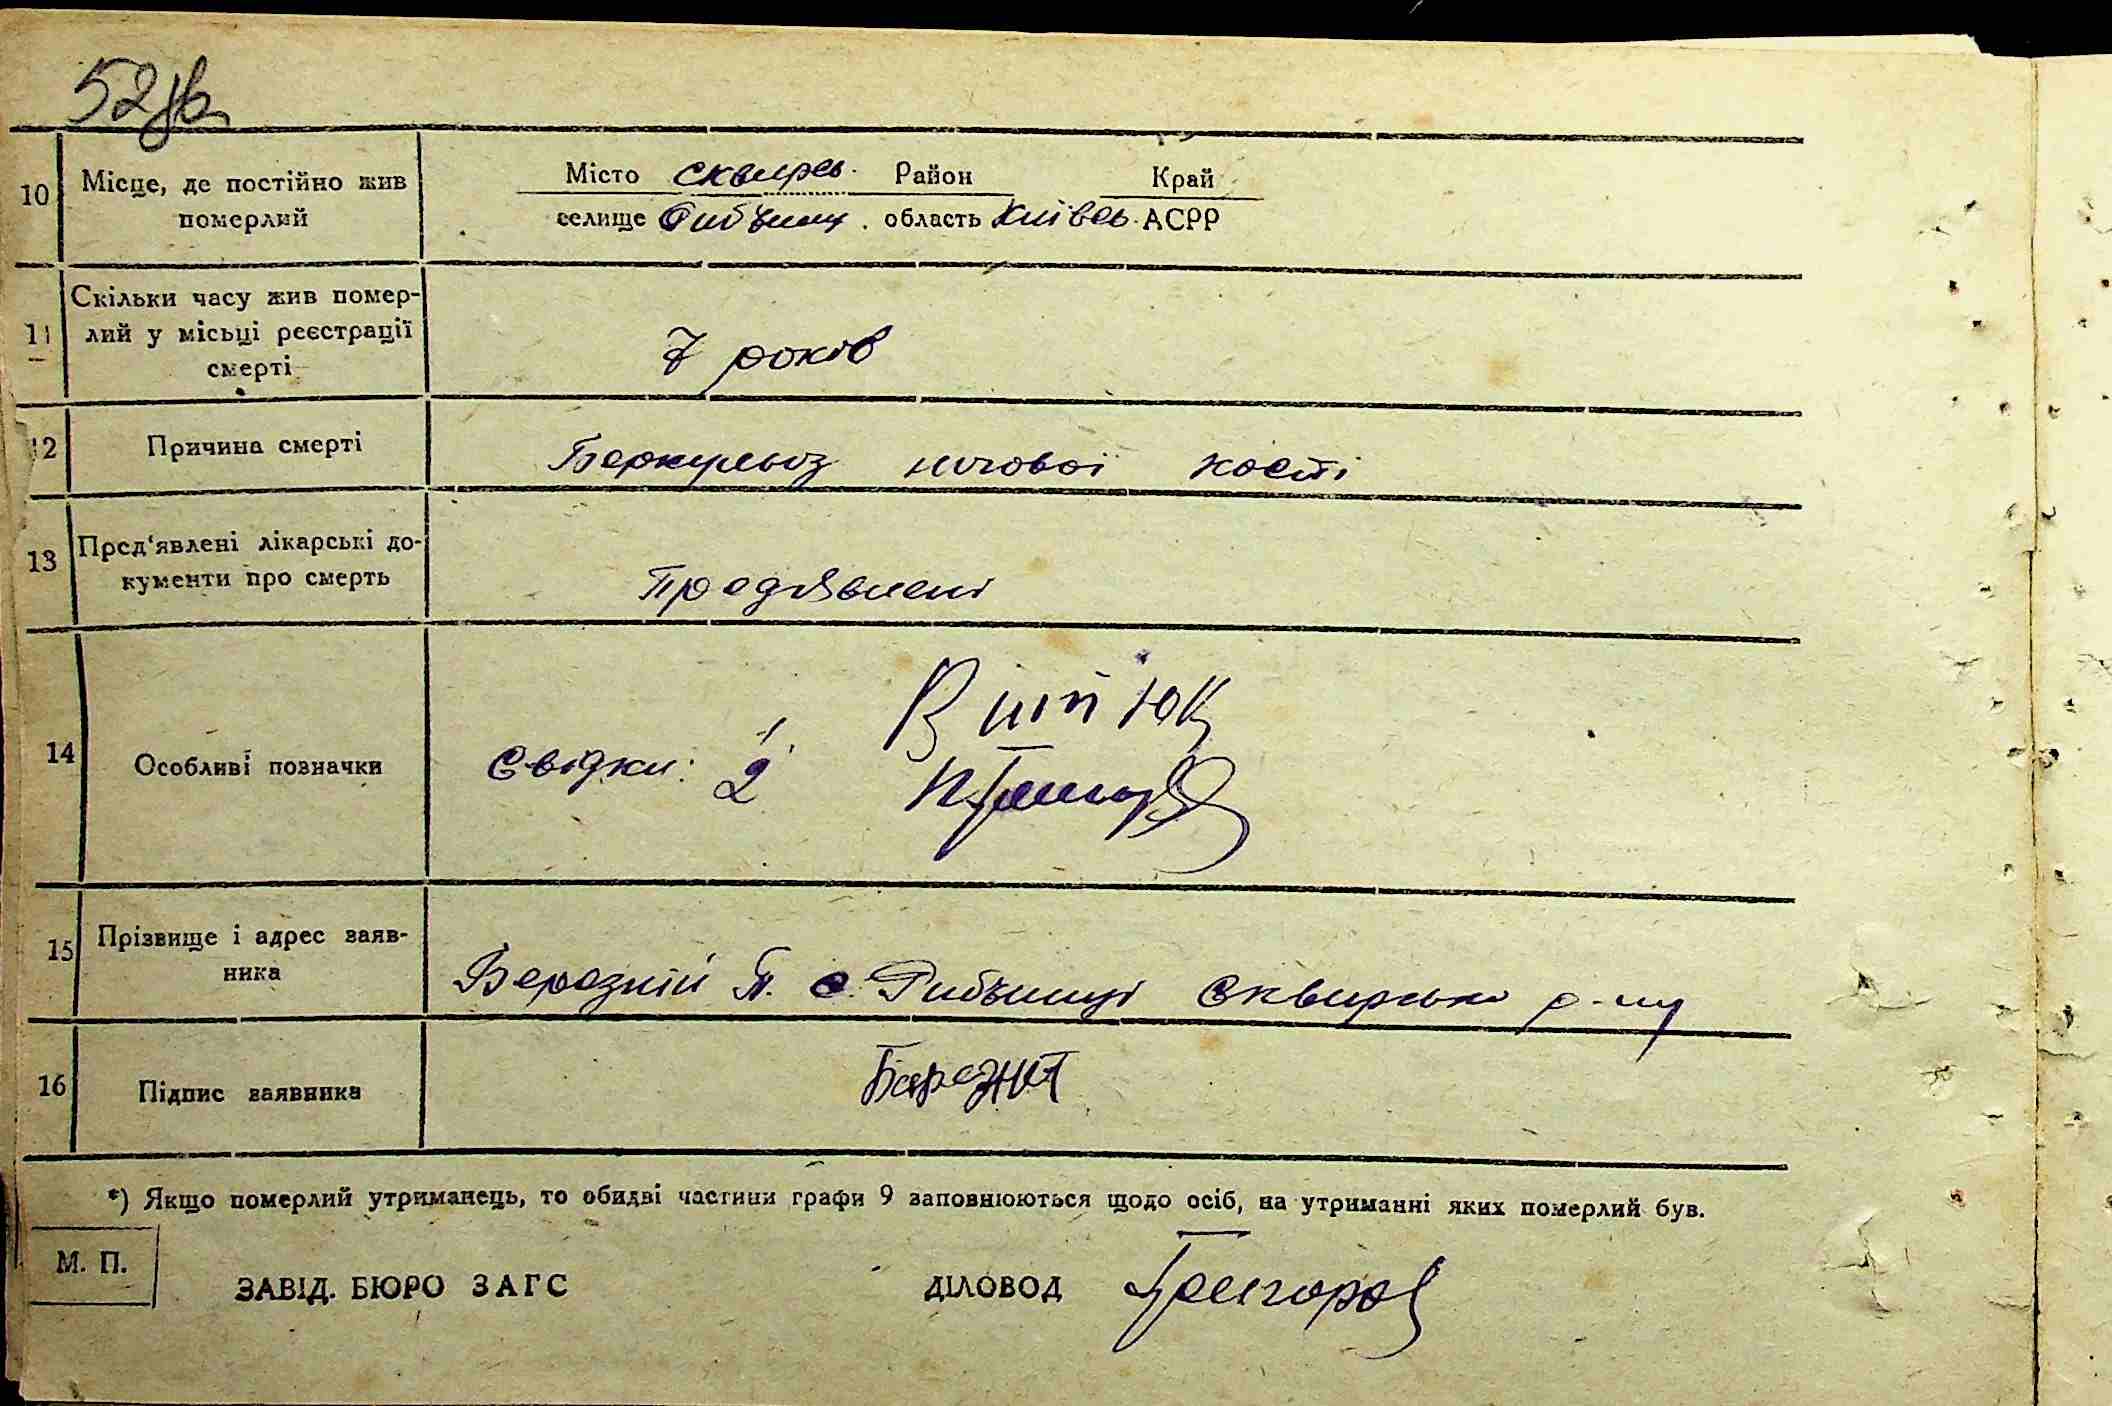 52зв.
10 Місце, де постійно жив померлий
Місто сквирсь. Район Край
селище Рибчинці. область Київсь. АСРР
11 Скільки часу жив помер-
лий у місьці реєстрації
смерті
7 років
12 Причина смерті Беркульоз ногової кості
13 Пред'явлені лікарські до-
кументи про смерть
Предявлені
14 Особливі позначки
Свідки: 1.
2
15 Прізвище і адрес заяв-
ника
Березній П. с. Рибчинці Сквирсько р-ну
16 Підпис заявника
*) Якщо померлий утриманець, то обидві частини графи 9 заповнюються щодо осіб, на утриманні яких померлий був.
М. П.
ЗАВІД. БЮРО ЗАГС ДІЛОВОД Григоров